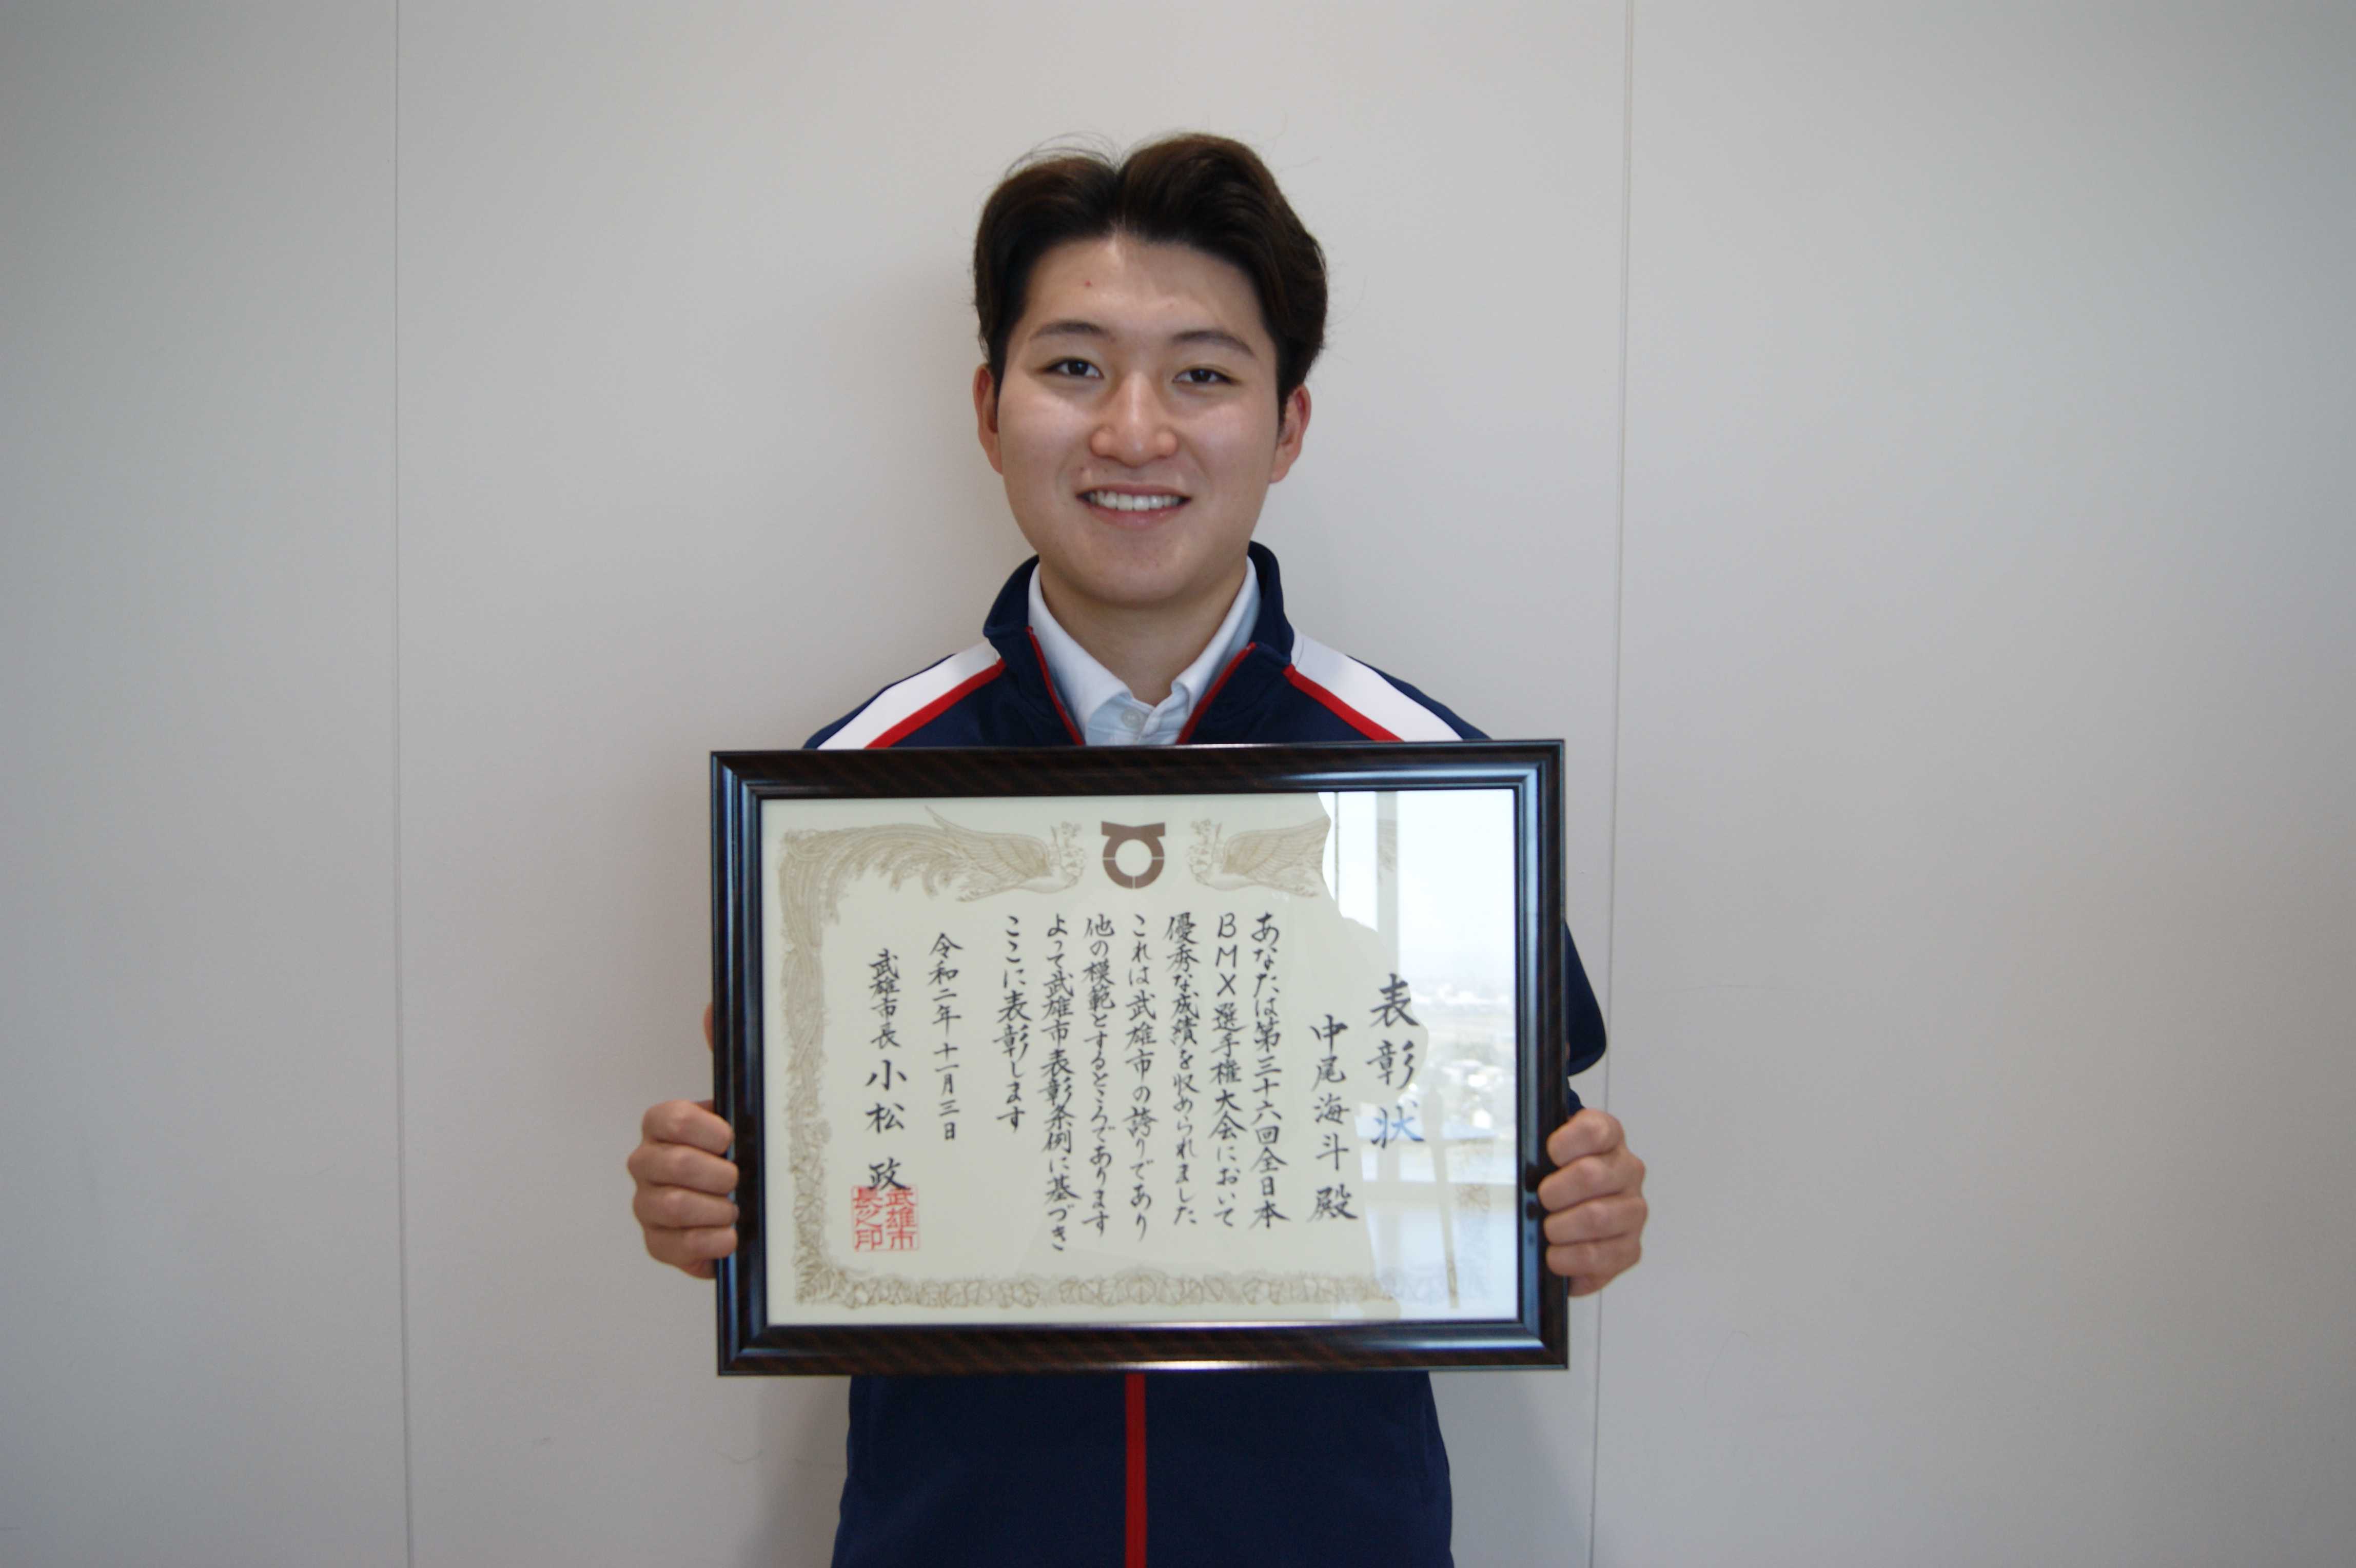 表彰状
中尾海斗殿
あなたは第三十六回全日本
BMX選手権大会において
優秀な成績を収められました
これは武雄市の誇りであり
他の模範とするところであります
よって武雄市表彰条例に基づき
ここに表彰します
令和二年十一月三日
武雄市長 小松 政
武雄市
長之印